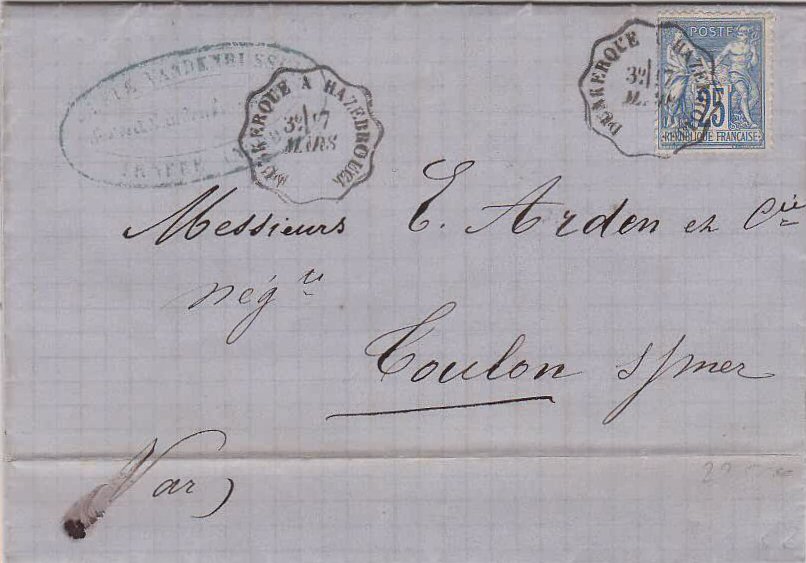 VANDENBUSSCHE
DUNKERQUE A HAZEBROUCK
MARS
DUNKERQUE HAZEBROUCK
POSTE
25
REPUBLIQUE FRANÇAISE
Messieurs E. Arden et Cie
négts
Toulon s/mer
Var)